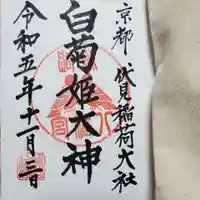 京都 伏見稲荷大社
白菊姫大神
令和五年十一月三日